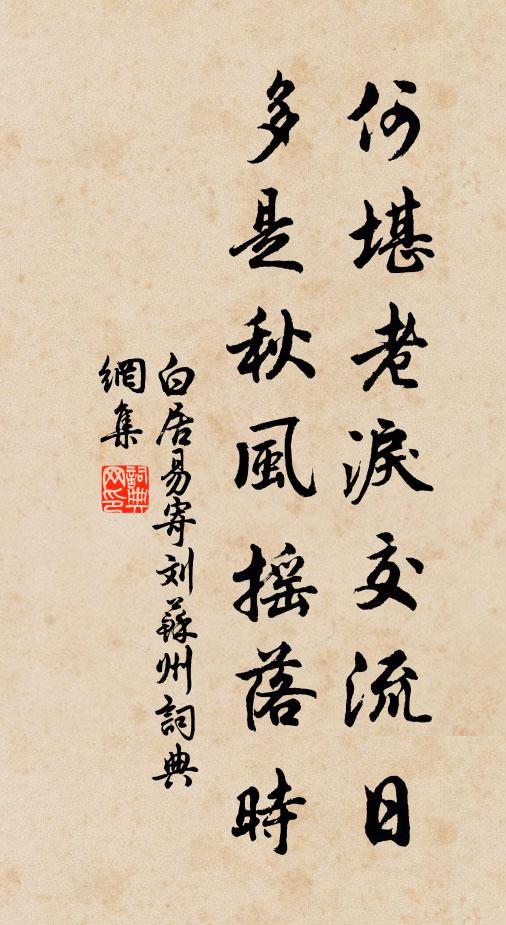 何堪老淚交流日
多是秋風摇落時
白居易寄刘蘇州詞典
網集
詞典
网印